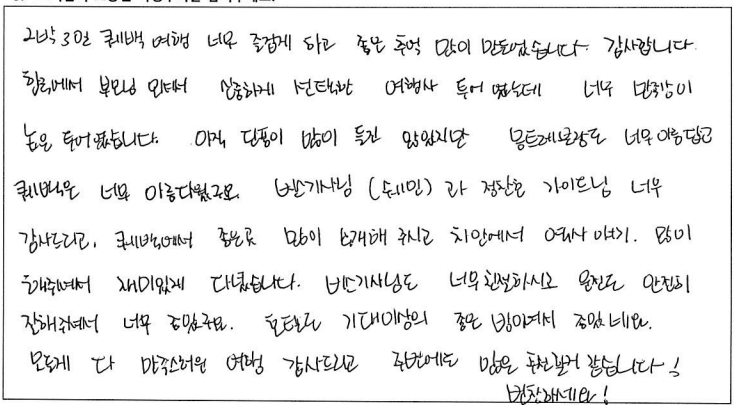 2박3일 퀘백 여행 너무 즐겁게 하고 좋은 추억 많이 만들었습니다. 감사합니다.
한국에서 부모님 오셔서 신중하게 선택한 여행사 투어 였는데 너무 만족감이
높은 투어였습니다. 아직 단풍이 많이 들진 않았지만 몽트레블랑도 너무 아름답고
퀘백은 너무 아름다웠구요. 버스기사님 (쉐인) 과 정찬호 가이드님 너무
감사드리고, 퀘백에서 좋은곳 많이 소개해 주시고 차안에서 역사 이야기. 많이
해주셔서 재미있게 다녔습니다. 버스기사님도 너무 친절하시고 운전도 안전히
잘해주셔서 너무 좋았구요. 호텔도 기대이상의 좋은 방이여서 좋았네요.
모든게 다 만족스러운 여행 감사드리고 주변에도 많은 추천할거 같습니다!
번창하세요!